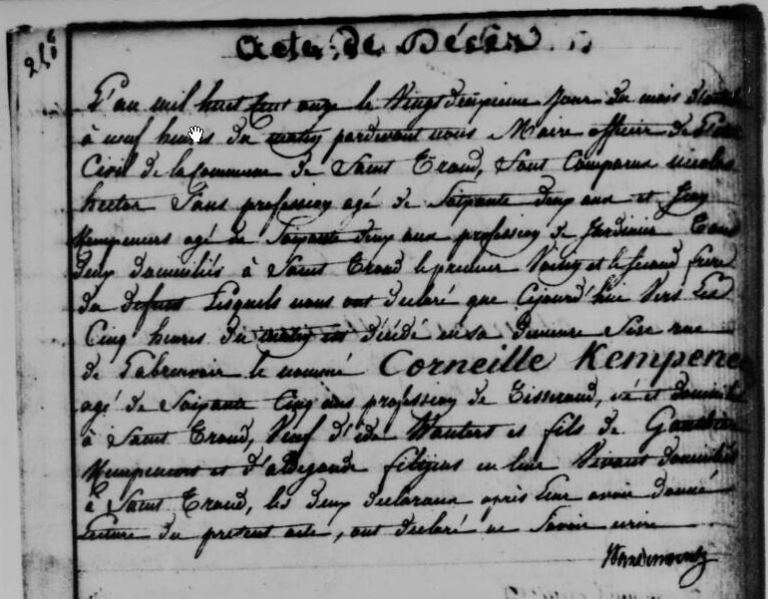 Acte de Décès
L'an mil huit cent onze le Vingt deuxieme Jour du mois
à neuf heures du matin pardevant nous Maire officier de l'Etat
Civil de la Commune de Saint Trond, Sont Comparus nicolas
hector Sans profession agé de Soixante deux ans et Jean
Kempeneers agé de Soixante deux ans profession de Jardinier Tous
deux domiciliés à Saint Trond le premier Voisin et le Second frere
du defunt Lesquels nous ont declaré que Cejourd'hui Vers Les
Cinq heures du matin est décédé en sa demeure Sise rue
de l'abreuvoir le nommé Corneille Kempeneers
agé de Soixante Cinq ans profession de Tisserand, né et domicilié
à Saint Trond, Veuf d'ide Wauters et fils de Gauthier
Kempeneers et d'aldegonde en leur Vivant domiciliés
à Saint Trond, les deux declarans après Leur avoir donné
Lecture du present acte, ont declaré ne Savoir ecrire